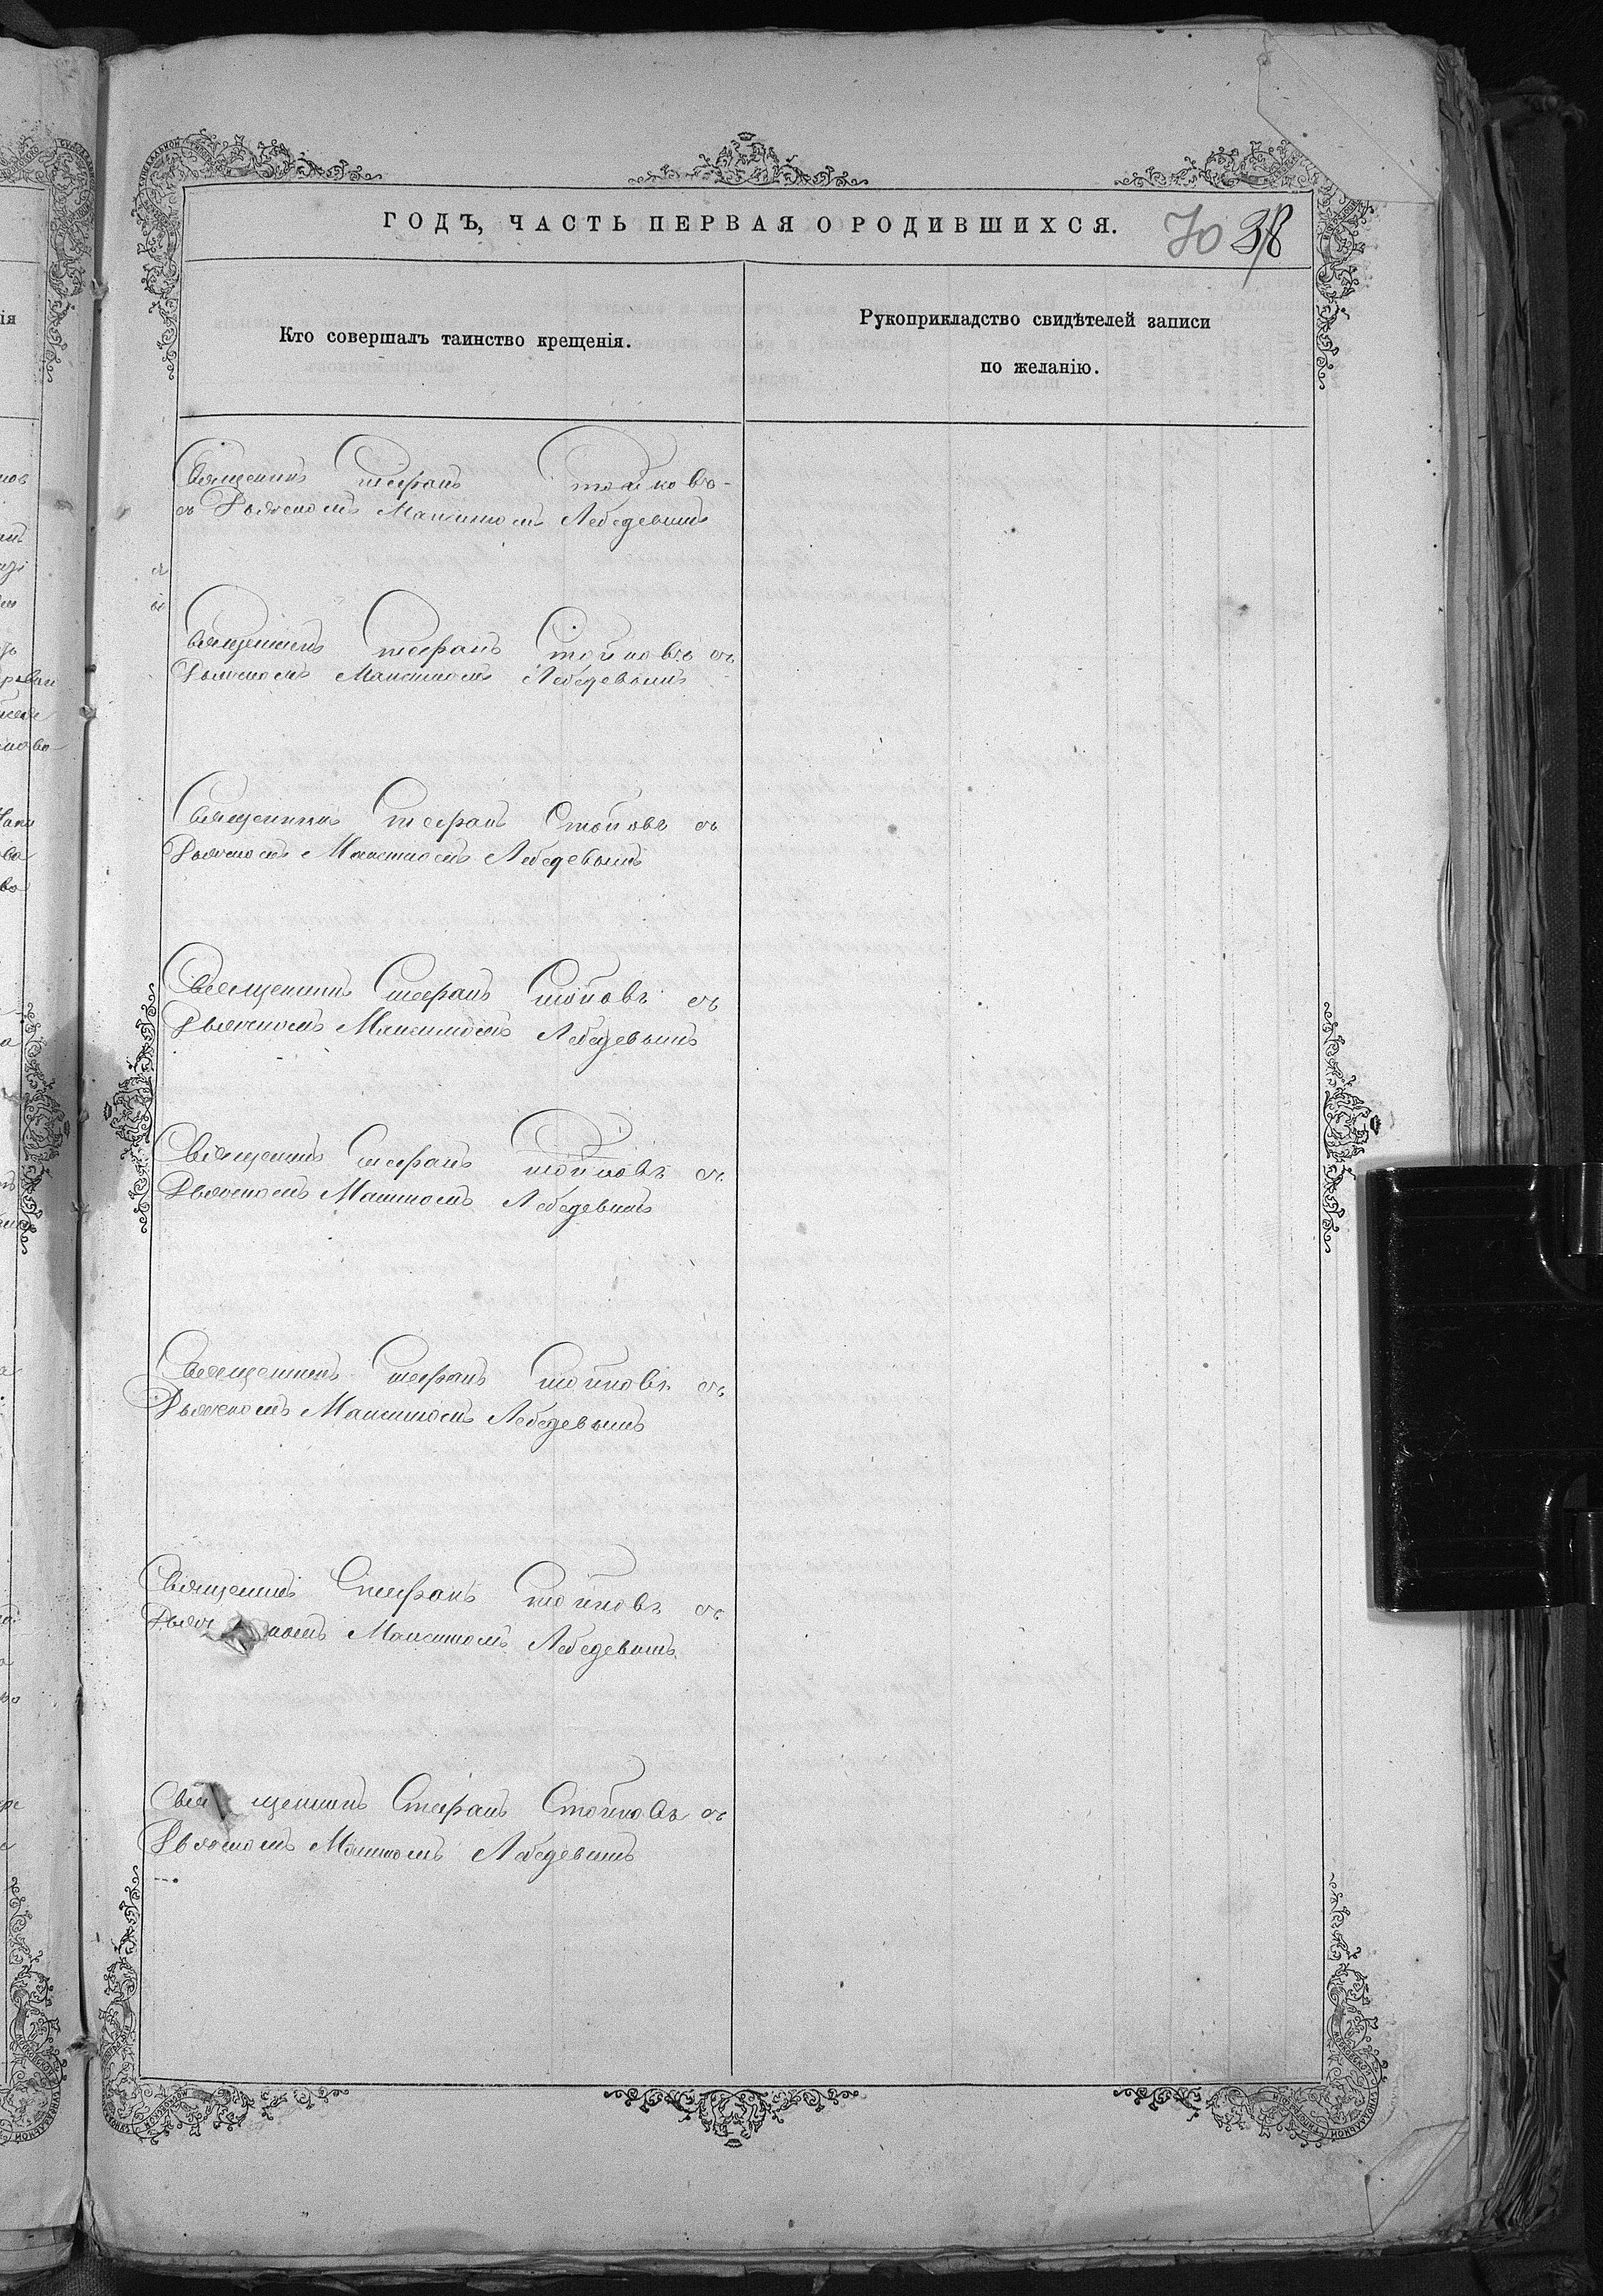 ГОДЪ, ЧАСТЬ ПЕРВАЯ О РОДИВШИХСЯ.
70 38
Кто совершалъ таинство крещенія.
Рукоприкладство свидѣтелей записи
по желанію.
Священникъ Стефанъ Стойковъ
съ Дьячкомъ Максимомъ Лебедевымъ
Священникъ Стефанъ Стойковъ съ
Дьячкомъ Максимомъ Лебедевымъ
Священникъ Стефанъ Стойковъ съ
Дьячкомъ Максимомъ Лебедевымъ
Священникъ Стефанъ Стойковъ съ
Дьячкомъ Максимомъ Лебедевымъ
Священникъ Стефанъ Стойковъ съ
Дьячкомъ Максимомъ Лебедевымъ
Священникъ Стефанъ Стойковъ съ
Дьячкомъ Максимомъ Лебедевымъ
Священникъ Стефанъ Стойковъ съ
Дьячкомъ Максимомъ Лебедевымъ
Священникъ Стефанъ Стойковъ съ
Дьячкомъ Максимомъ Лебедевымъ